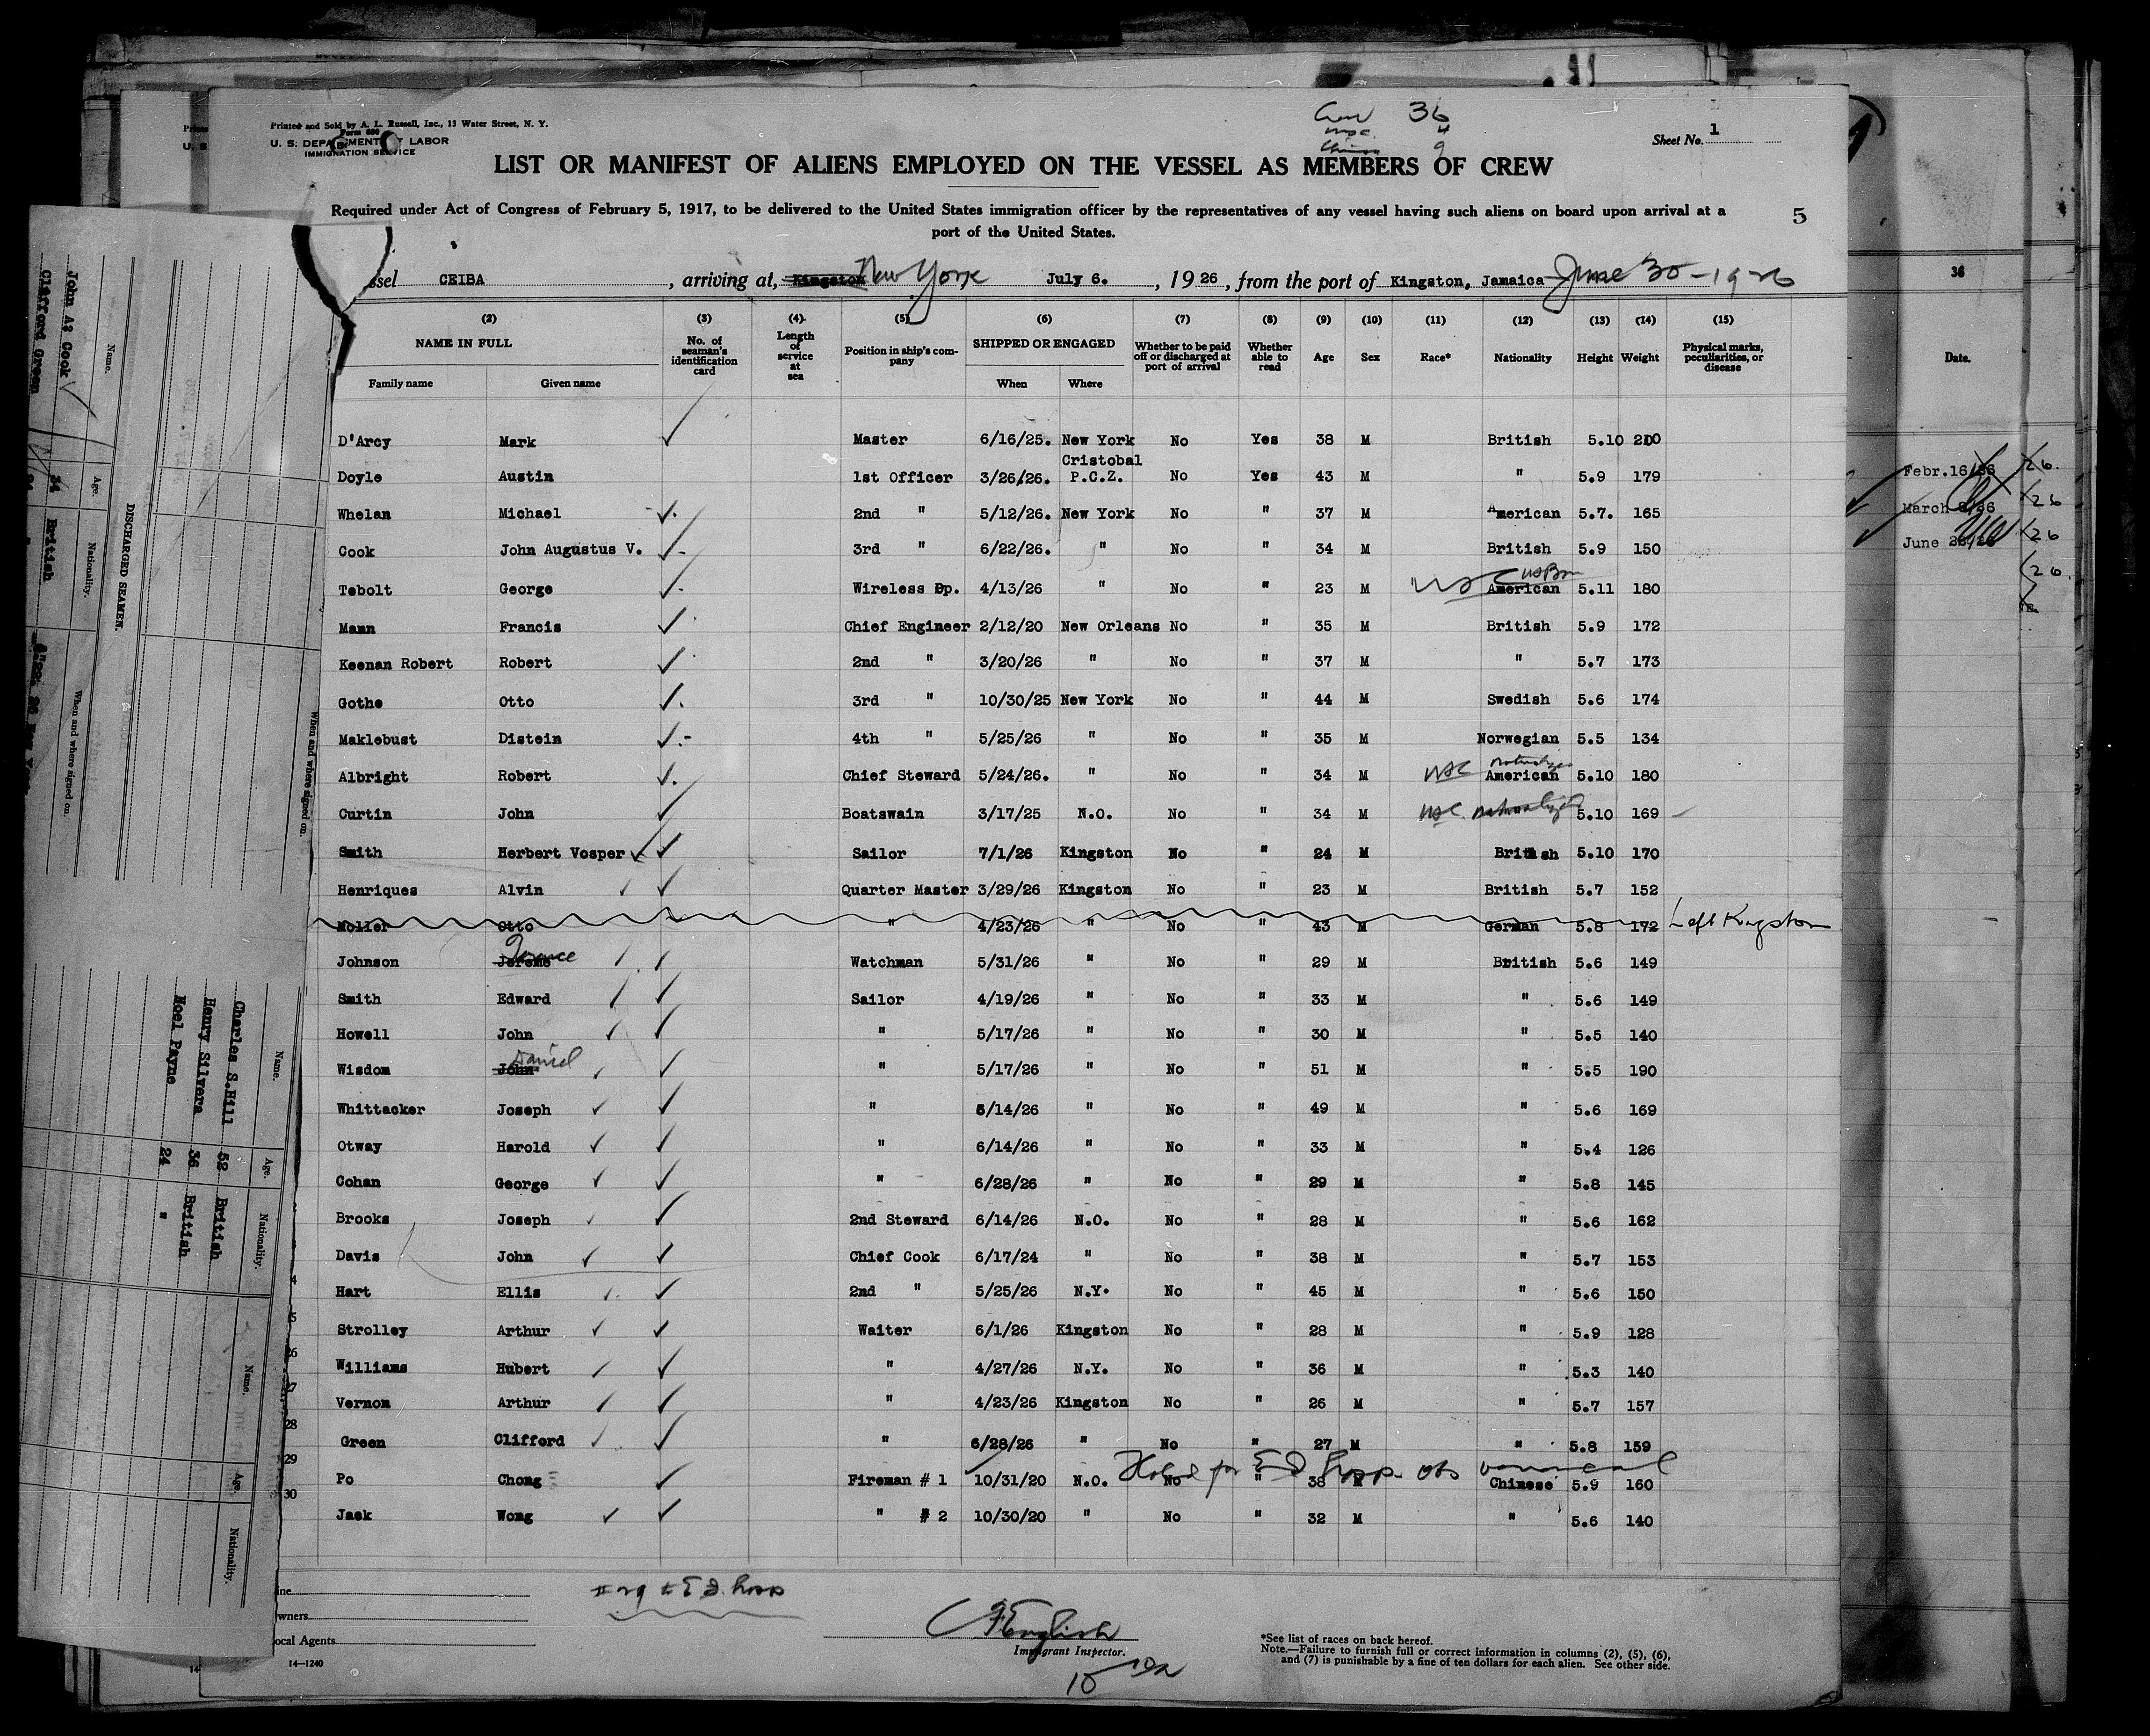 Printed and Sold by A. L. Russell, Inc., 13 Water Street, N. Y.
Form 680
U. S. DEPARTMENT OF LABOR
IMMIGRATION SERVICE
36
4
9
Sheet No. 1
LIST OR MANIFEST OF ALIENS EMPLOYED ON THE VESSEL AS MEMBERS OF CREW
Required under Act of Congress of February 5, 1917, to be delivered to the United States immigration officer by the representatives of any vessel having such aliens on board upon arrival at a
port of the United States.
5
ssel CEIBA , arriving at, Kingston New York July 6. , 19 26 , from the port of Kingston, Jamaica June 30 - 1926
(2) (3) (4) (5) (6) (7) (8) (9) (10) (11) (12) (13) (14) (15)
NAME IN FULL No. of seaman's identification card Length of service at sea Position in ship's company SHIPPED OR ENGAGED Whether to be paid off or discharged at port of arrival Whether able to read Age Sex Race* Nationality Height Weight Physical marks, peculiarities, or disease
Family name Given name When Where
D'Arcy Mark Master 6/16/25. New York No Yes 38 M British 5.10 200
Cristobal
Doyle Austin 1st Officer 3/26/26. P.C.Z. No Yes 43 M " 5.9 179
Whelan Michael 2nd " 5/12/26. New York No " 37 M American 5.7. 165
Cook John Augustus V. 3rd " 6/22/26. " No " 34 M British 5.9 150
Tebolt George Wireless Op. 4/13/26 " No " 23 M USC US Born American 5.11 180
Mann Francis Chief Engineer 2/12/20 New Orleans No " 35 M British 5.9 172
Keenan Robert Robert 2nd " 3/20/26 " No " 37 M " 5.7 173
Gothe Otto 3rd " 10/30/25 New York No " 44 M Swedish 5.6 174
Maklebust Distein 4th " 5/25/26 " No " 35 M Norwegian 5.5 134
Albright Robert Chief Steward 5/24/26. " No " 34 M USC American 5.10 180
Curtin John Boatswain 3/17/25 N.O. No " 34 M USC. naturalized 5.10 169
Smith Herbert Vosper Sailor 7/1/26 Kingston No " 24 M British 5.10 170
Henriques Alvin Quarter Master 3/29/26 Kingston No " 23 M British 5.7 152
Moller Otto " 4/23/26 " No " 43 M German 5.8 172 Left Kingston
Johnson Jerome Watchman 5/31/26 " No " 29 M British 5.6 149
Smith Edward Sailor 4/19/26 " No " 33 M " 5.6 149
Howell John " 5/17/26 " No " 30 M " 5.5 140
Daniel
Wisdom John " 5/17/26 " No " 51 M " 5.5 190
Whittacker Joseph " 6/14/26 " No " 49 M " 5.6 169
Otway Harold " 6/14/26 " No " 33 M " 5.4 126
Cohan George " 6/28/26 " No " 29 M " 5.8 145
Brooks Joseph 2nd Steward 6/14/26 N.O. No " 28 M " 5.6 162
Davis John Chief Cook 6/17/24 " No " 38 M " 5.7 153
4 Hart Ellis 2nd " 5/25/26 N.Y. No " 45 M " 5.6 150
5 Strolley Arthur Waiter 6/1/26 Kingston No " 28 M " 5.9 128
26 Williams Hubert " 4/27/26 N.Y. No " 36 M " 5.3 140
27 Vernon Arthur " 4/23/26 Kingston No " 26 M " 5.7 157
28 Green Clifford " 6/28/26 " No " 27 M " 5.8 159
29 Po Chong Fireman # 1 10/31/20 N.O. No " 38 M Chinese 5.9 160
30 Jack Wong " # 2 10/30/20 " No " 32 M " 5.6 140
ine
wners
ocal Agents
14-1240
English
Immigrant Inspector.
*See list of races on back hereof.
Note.—Failure to furnish full or correct information in columns (2), (5), (6),
and (7) is punishable by a fine of ten dollars for each alien. See other side.
DISCHARGED SEAMEN.
Name. Age. Nationality. When and where signed on.
John A: Cook 34 British
Clifford Green
When and where signed on.
Name. Age. Nationality.
Charles S.Hill 52 British
Henry Silvera 36 British
Noel Payne 24 "
Name. Age. Nationality.
36
Date.
Febr.16/26
March
June
26.
26
26
26.
14